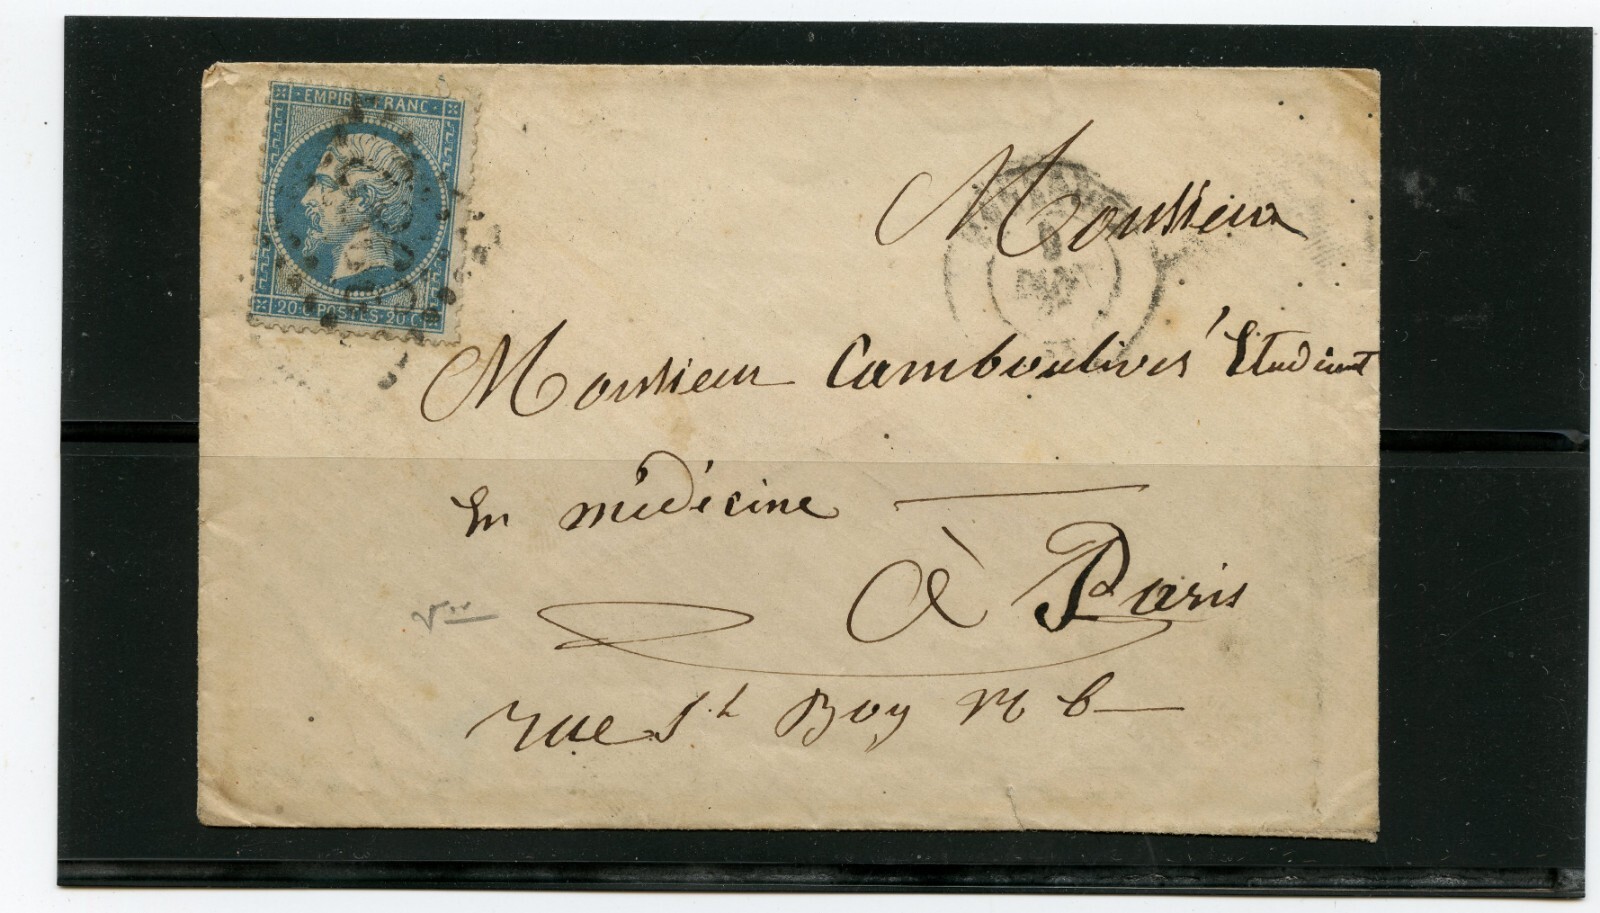 EMPIRE FRANC
20·C·POSTES·20·C
Monsieur
Monsieur Camboulives Etudiant
En médecine
à Paris
rue St Boy N 6